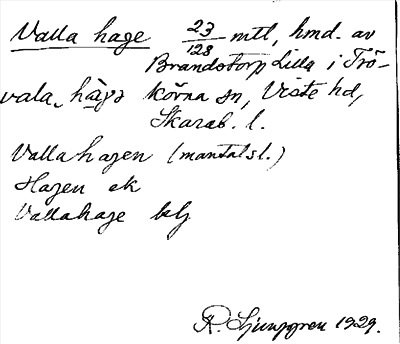 Valla hage 23/128 mtl, hmd. av
Brandstorp Lilla i Trö-
vala, hàgə körna sn, Viste hd,
Skarab. l.
Valla hagen (mantalsl.)
Hagen ek
Vallahage blj
R. Ljunggren 1929.